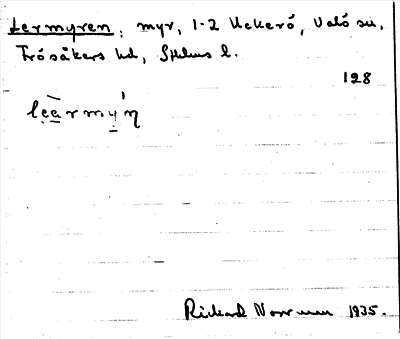 Lermyren, myr, 1-2 Uckerö, Valö sn,
Frösåkers hd, Sthlms l.
128
leàrmýn
Richard Norrman 1935.